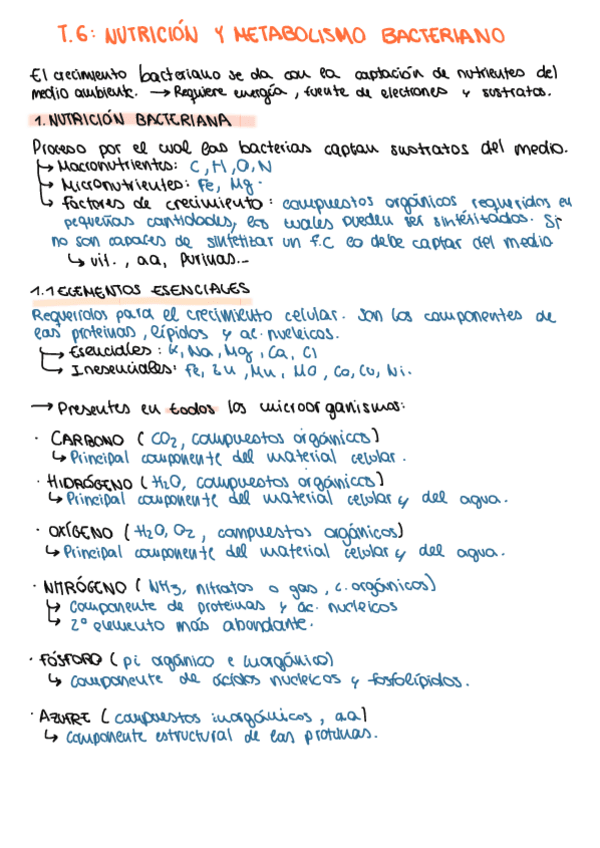 T.6: NUTRICIÓN Y METABOLISMO BACTERIANO
El crecimiento bacteriano se da con la captación de nutrientes del
medio ambiente. → Requiere energía, fuente de electrones y sustratos.
1. NUTRICIÓN BACTERIANA
Proceso por el cual las bacterias captan sustratos del medio.
↳ Macronutrientes: C, H, O, N
↳ Micronutrientes: Fe, Mg.
↳ Factores de crecimiento: compuestos orgánicos requeridos en
pequeñas cantidades, los cuales pueden ser sintetizados. Si
no son capaces de sintetizar un f.C lo debe captar del medio
↳ vit., aa, purinas...
1.1 ELEMENTOS ESENCIALES
Requeridos para el crecimiento celular. Son los componentes de
las proteínas, lípidos y ac. nucleicos.
↳ Esenciales: K, Na, Mg, Ca, Cl
↳ Inesenciales: Fe, Zu, Mn, MO, Co, Cu, Ni.
→ Presentes en todos los microorganismos:
· CARBONO (CO2, compuestos orgánicos)
↳ Principal componente del material celular.
· HIDRÓGENO (H2O, compuestos orgánicos)
↳ Principal componente del material celular y del agua.
· OXÍGENO (H2O, O2, compuestos orgánicos)
↳ Principal componente del material celular y del agua.
· NITRÓGENO (NH3, nitratos o gas, c. orgánicos)
↳ Componente de proteínas y ác. nucleicos
↳ 2º elemento más abundante.
· FÓSFORO (pi orgánico e inorgánico)
↳ componente de ácidos nucleicos y fosfolípidos.
· AZUFRE (compuestos inorgánicos, aa)
↳ componente estructural de las proteínas.